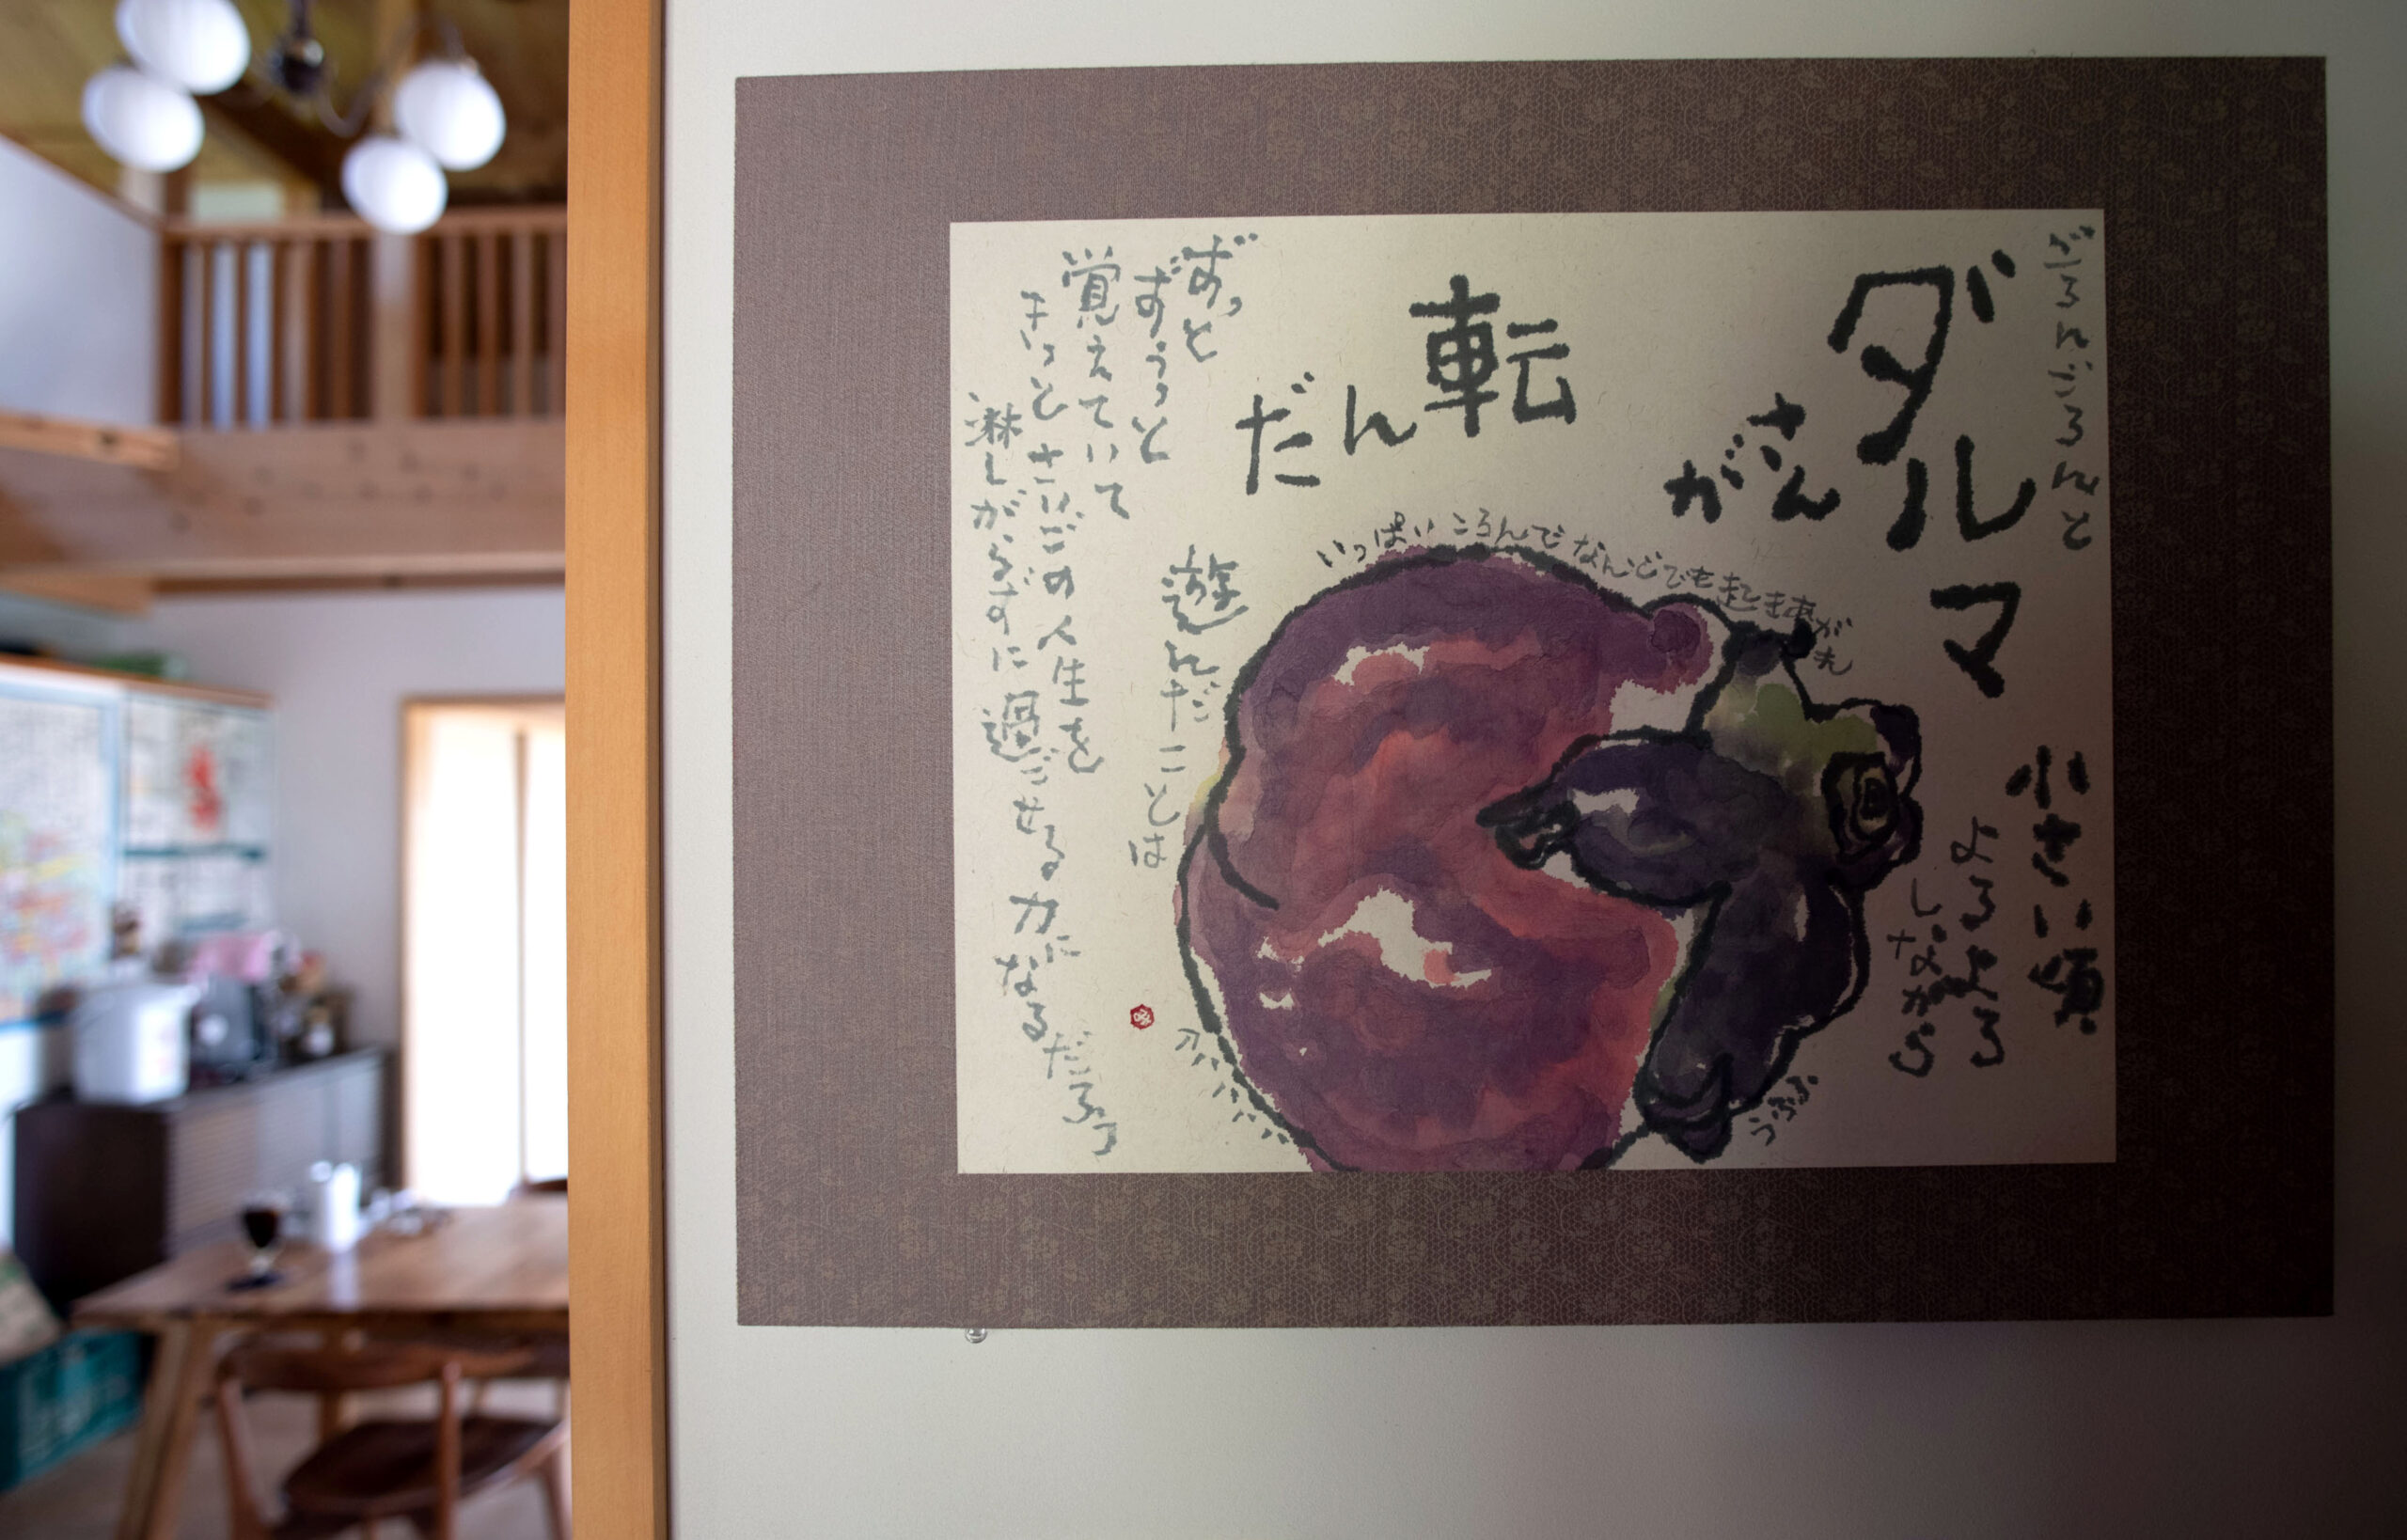 ごろんごろんと
ダルマ
さん
が
転
んだ
小さい頃
よろよろ
しながら
いっぱいころんでなんどでも起きあがれ
うふふ
遊んだことは
ずっと
ずうっと
覚えていて
きっとさいごの人生を
淋しがらずに過ごせる力に
なる
だろう